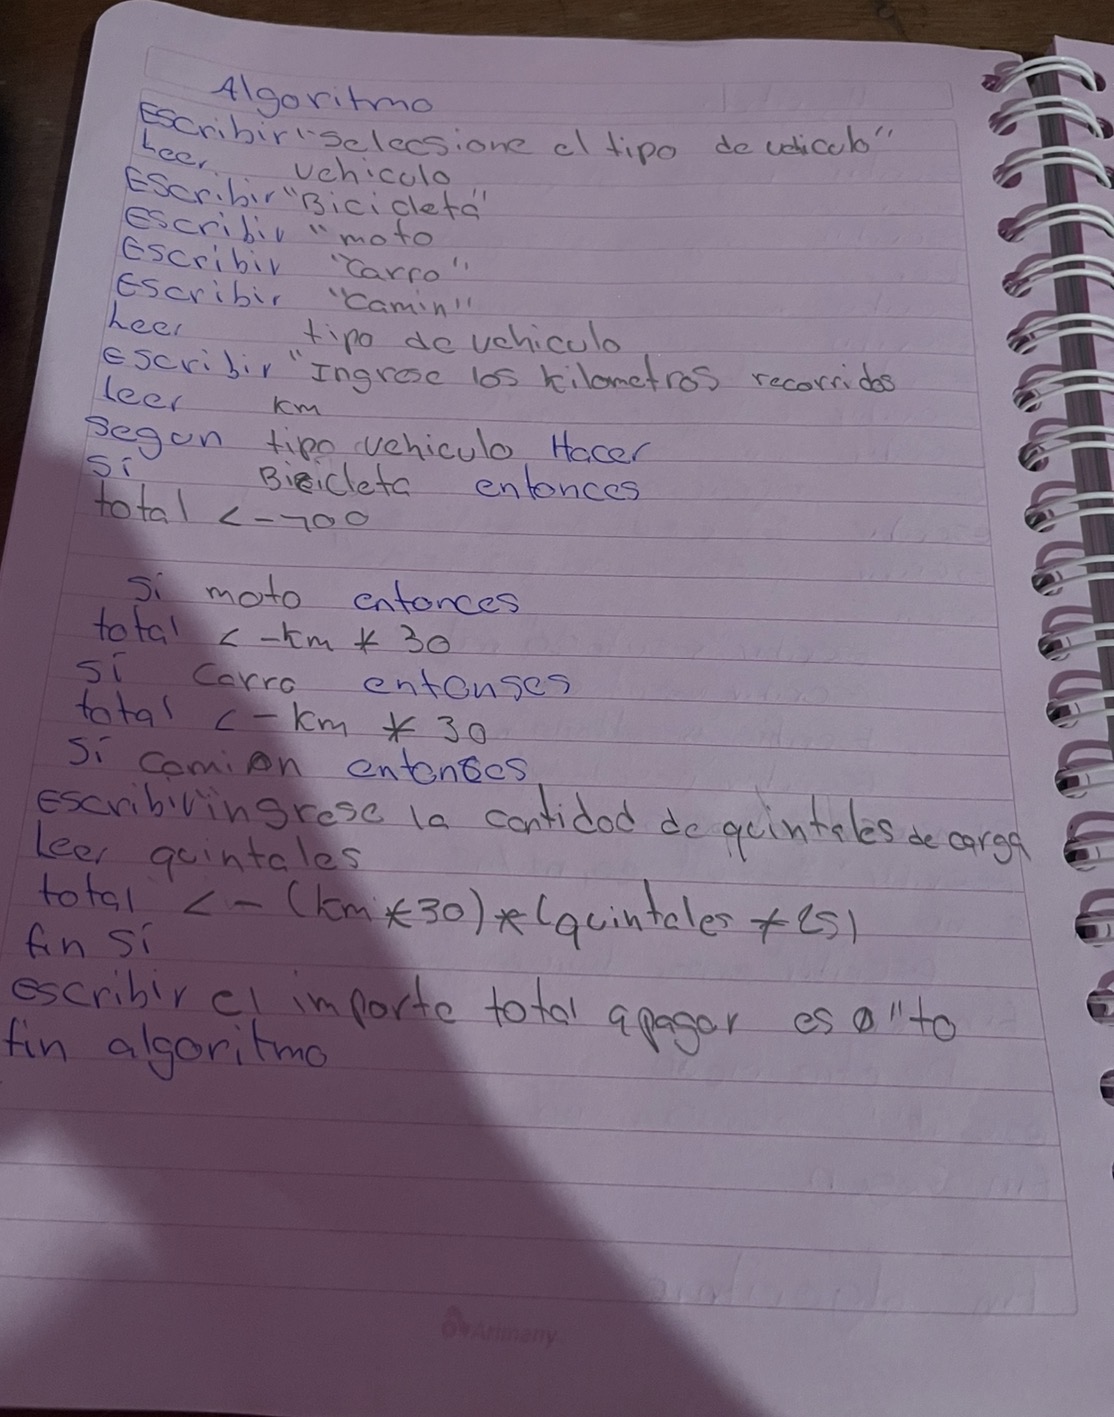 Algoritmo
Escribir "Selecsione el tipo de vehiculo"
Leer vehiculo
Escribir "Bicicleta"
Escribir "moto
Escribir "Carro"
Escribir "Camin"
Leer tipo de vehiculo
Escribir "Ingrese los kilometros recorridos
leer km
Segun tipo vehiculo Hacer
Si Bicicleta entonces
total <-100
Si moto entonces
total <-km * 30
si Carro entonses
total <-km * 30
Si Camion entonces
Escribir ingrese la cantidad de quintales de carga
Leer quintales
total <- (km *30) * (quintales * 25)
fin si
escribir el importe total apagar es "to
fin algoritmo
Arimany